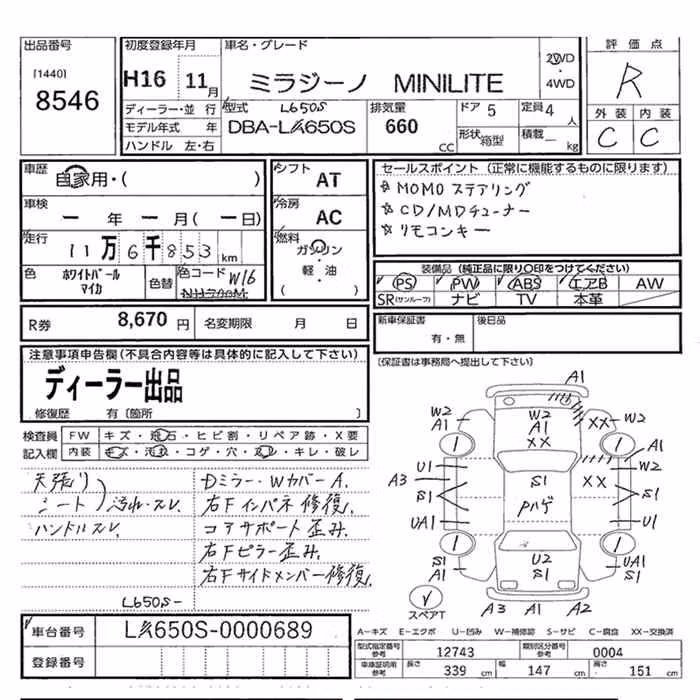 出品番号
[1440]
8546
初度登録年月
H16 11月
ディーラー・並行
モデル年式 年
ハンドル 左・右
車名・グレード
ミラジーノ MINILITE
2WD
・
4WD
型式 L650S
DBA-L650S
排気量
660
CC
ドア 5
形状 箱型
定員 4人
積載 ― kg
評価点
R
外装 内装
C C
車歴
自家用・( )
車検
― 年 ― 月 (― 日)
走行
11万6千853km
色 ホワイトパール
マイカ
色替
色コード W16
シフト
AT
冷房
AC
燃料
ガソリン
・
軽・油
( )
セールスポイント (正常に機能するものに限ります)
☆ MOMO ステアリング
☆ CD/MDチューナー
☆ リモコンキー
装備品 (純正品に限り○印をつけてください)
PS PW ABS エアB AW
SR(サンルーフ) ナビ TV 本革
R券 8,670円 名変期限 月 日
新車保証書
有・無
後日品
[保証書は事務局へ提出して下さい]
注意事項申告欄(不具合内容等は具体的に記入して下さい)
ディーラー出品
修復歴 有〔箇所 〕
検査員 FW キズ・飛石・ヒビ割・リペア跡・X要
記入欄 内装 キズ・汚れ・コゲ・穴・スレ・キレ・破レ
天張り
シート 汚れ・スレ
ハンドルスレ
Dミラー・WカバーA.
右Fインパネ修復.
コアサポート歪み.
右Fピラー歪み.
右Fサイドメンバー修復.
L650S-
車台番号 L650S-0000689
登録番号
A1
W2
A1
W2
A1
XX
XX
W2
A1
U1
A3
S1
UA1
S1
Pハゲ
XX
A1
W2
S1
U1
S1
A1
U2
S1
UA1
S1
スペアT
A3 A1 A2
A-キズ E-エクボ U-凹み W-補修跡 S-サビ C-腐食 XX-交換済
型式指定番号
参考
12743
類別区分番号
参考
0004
車庫証明用
参考
長さ 339 cm
幅 147 cm
高さ 151 cm